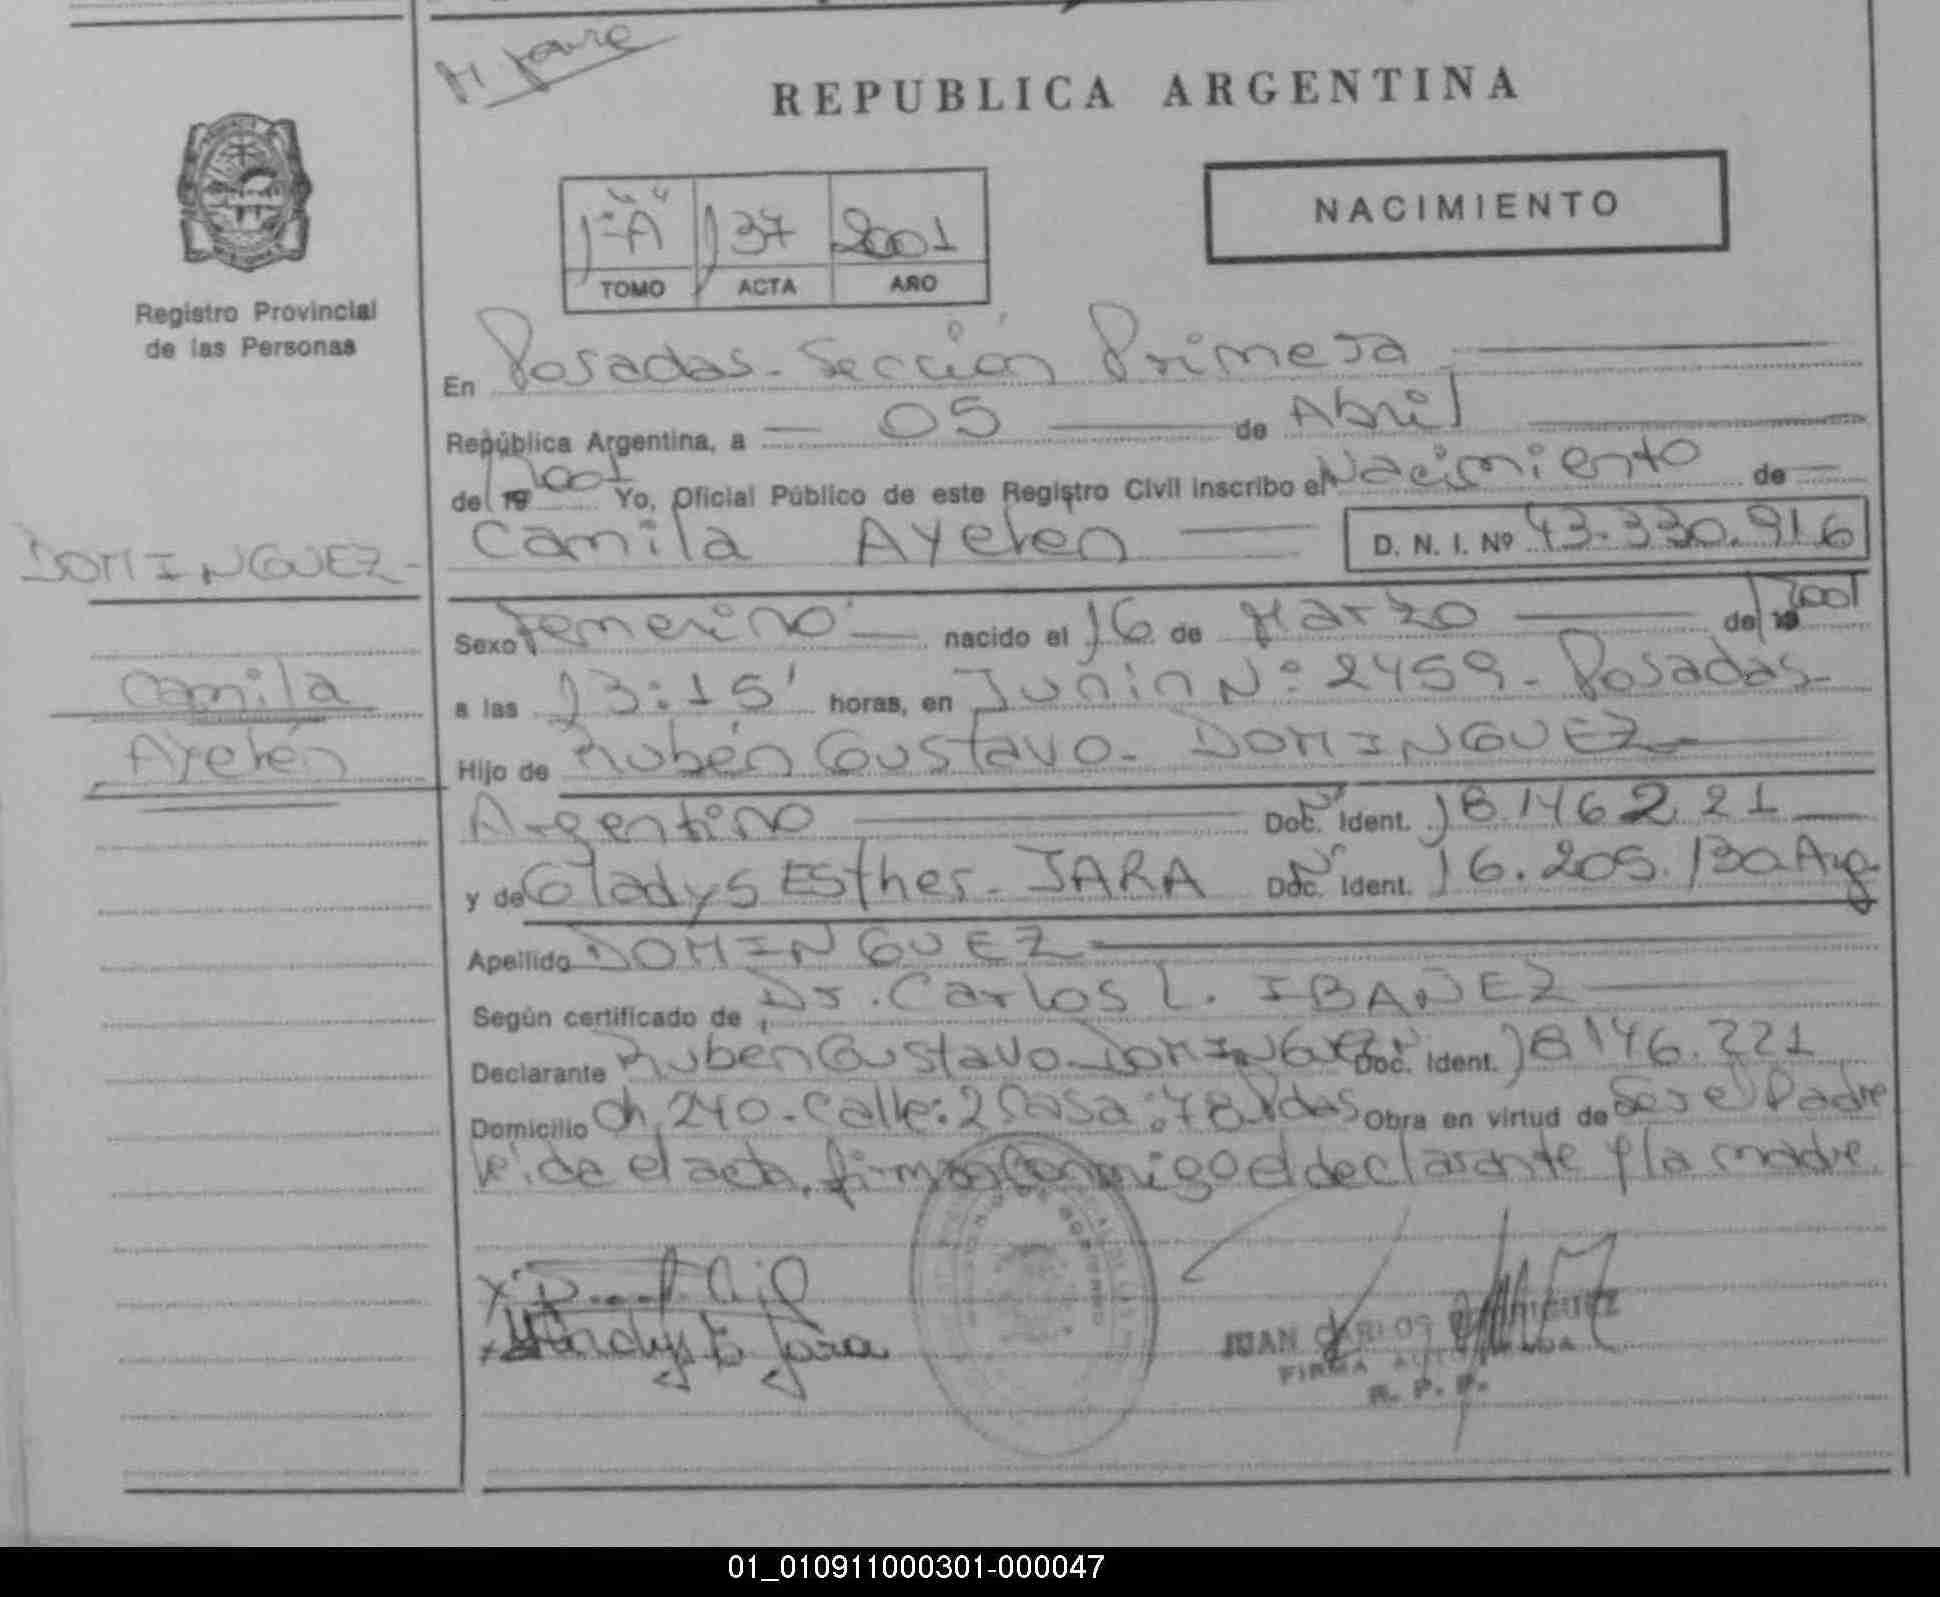 REPUBLICA ARGENTINA
NACIMIENTO
1-"A" 137 2001
TOMO ACTA AÑO
Registro Provincial
de las Personas
En Posadas - Sección Primera
República Argentina, a 05 de Abril
de 19 2001 Yo, Oficial Público de este Registro Civil inscribo el Nacimiento de
DOMINGUEZ - Camila Ayelen D. N. I. Nº 43.330.916
Sexo femenino nacido el 16 de Marzo de 19 2001
Camila
a las 13:15' horas, en Junin Nº 2459 - Posadas -
Ayelén
Hijo de Rubén Gustavo - DOMINGUEZ -
Argentino Doc. Ident. 18146221
y de Gladys Esther - JARA Doc. Ident. 16.205.130 Arg
Apellido DOMINGUEZ
Según certificado de Dr. Carlos L. IBAÑEZ
Declarante Rubén Gustavo DOMINGUEZ Doc. Ident. 18146.221
Domicilio Ch 240 - Calle: 2 Casa: 78 Pdas Obra en virtud de Ser el Padre
leída el acta, firman conmigo el declarante y la madre
Gladys E. Jara
JUAN CARLOS
FIRMA AUTORIZADA
R. P. P.
01_010911000301-000047